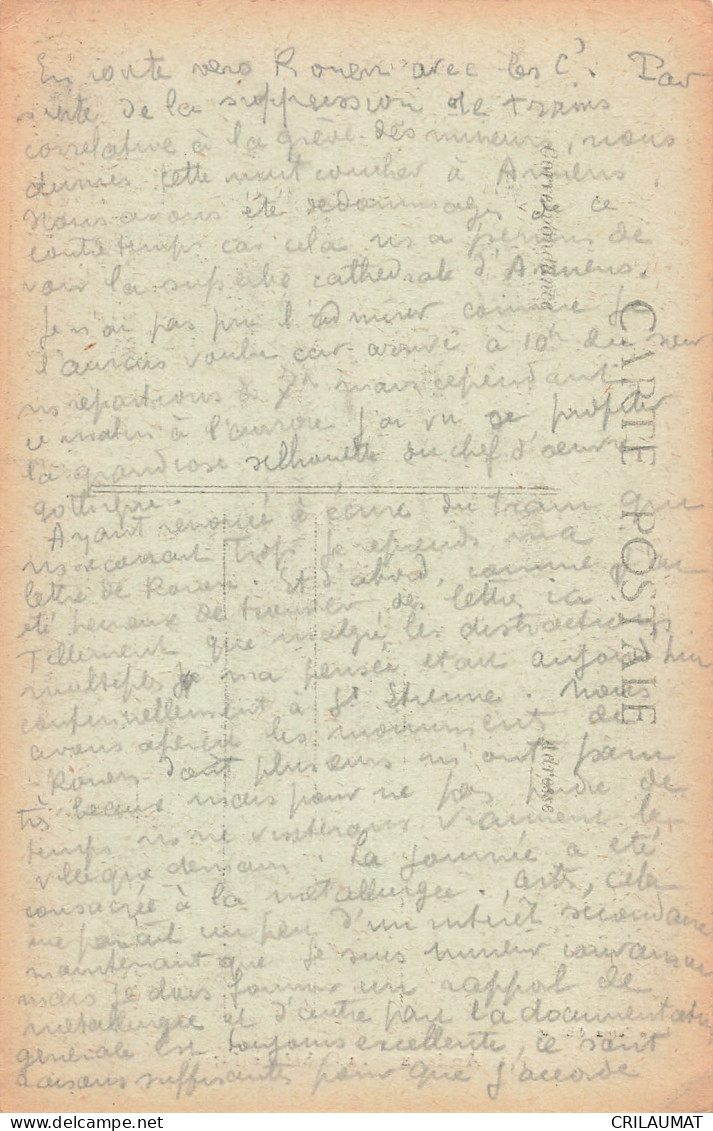 En route vers Rouen avec les Cs. Par
suite de la suppression de trains
corrélative à la grève des mineurs, nous
dûmes cette nuit coucher à Amiens.
Nous avons été dédommagés de ce
contretemps car cela ns a permis de
voir la superbe cathédrale d'Amiens.
Je n'ai pas pu l'admirer comme je
l'aurais voulu car arrivé à 10h du soir
ns repartions à 7h mais cependant
ce matin à l'aurore j'ai vu se profiler
la grandiose silhouette du chef d'oeuvre
gothique.
Ayant renoncé à écrire du train que
ns secouait trop je reprends ma
lettre de Rouen. Et d'abord, comme j'ai
été heureux de trouver des lettre ici
Tellement que malgré les distractions
multiples je ma pensée était aujourd'hui
continuellement à St Etienne. Nous
avons aperçu les monuments de
Rouen dont plusieurs m'ont paru
très beaux mais pour ne pas perdre de
temps ns ne visiterons vraiment la
ville que demain. La journée a été
consacrée à la métallurgie, cela
me paraît un peu d'un intérêt secondaire
maintenant que je suis mineur
mais je dois fournir un rapport de
métallurgie et d'autre part la documentation
générale est toujours excellente, ce sont
raisons suffisantes pour que j'accorde
CARTE POSTALE
Correspondance
Adresse
delcampe.net
CRILAUMAT